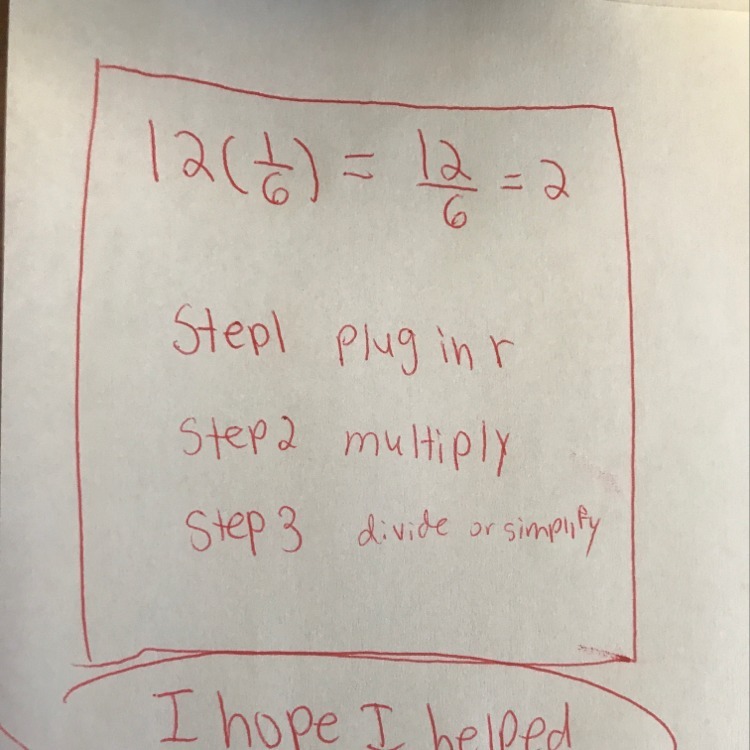 12(1/6) = 12/6 = 2
Step1 plug in r
Step2 multiply
Step3 divide or simplify
I hope I helped